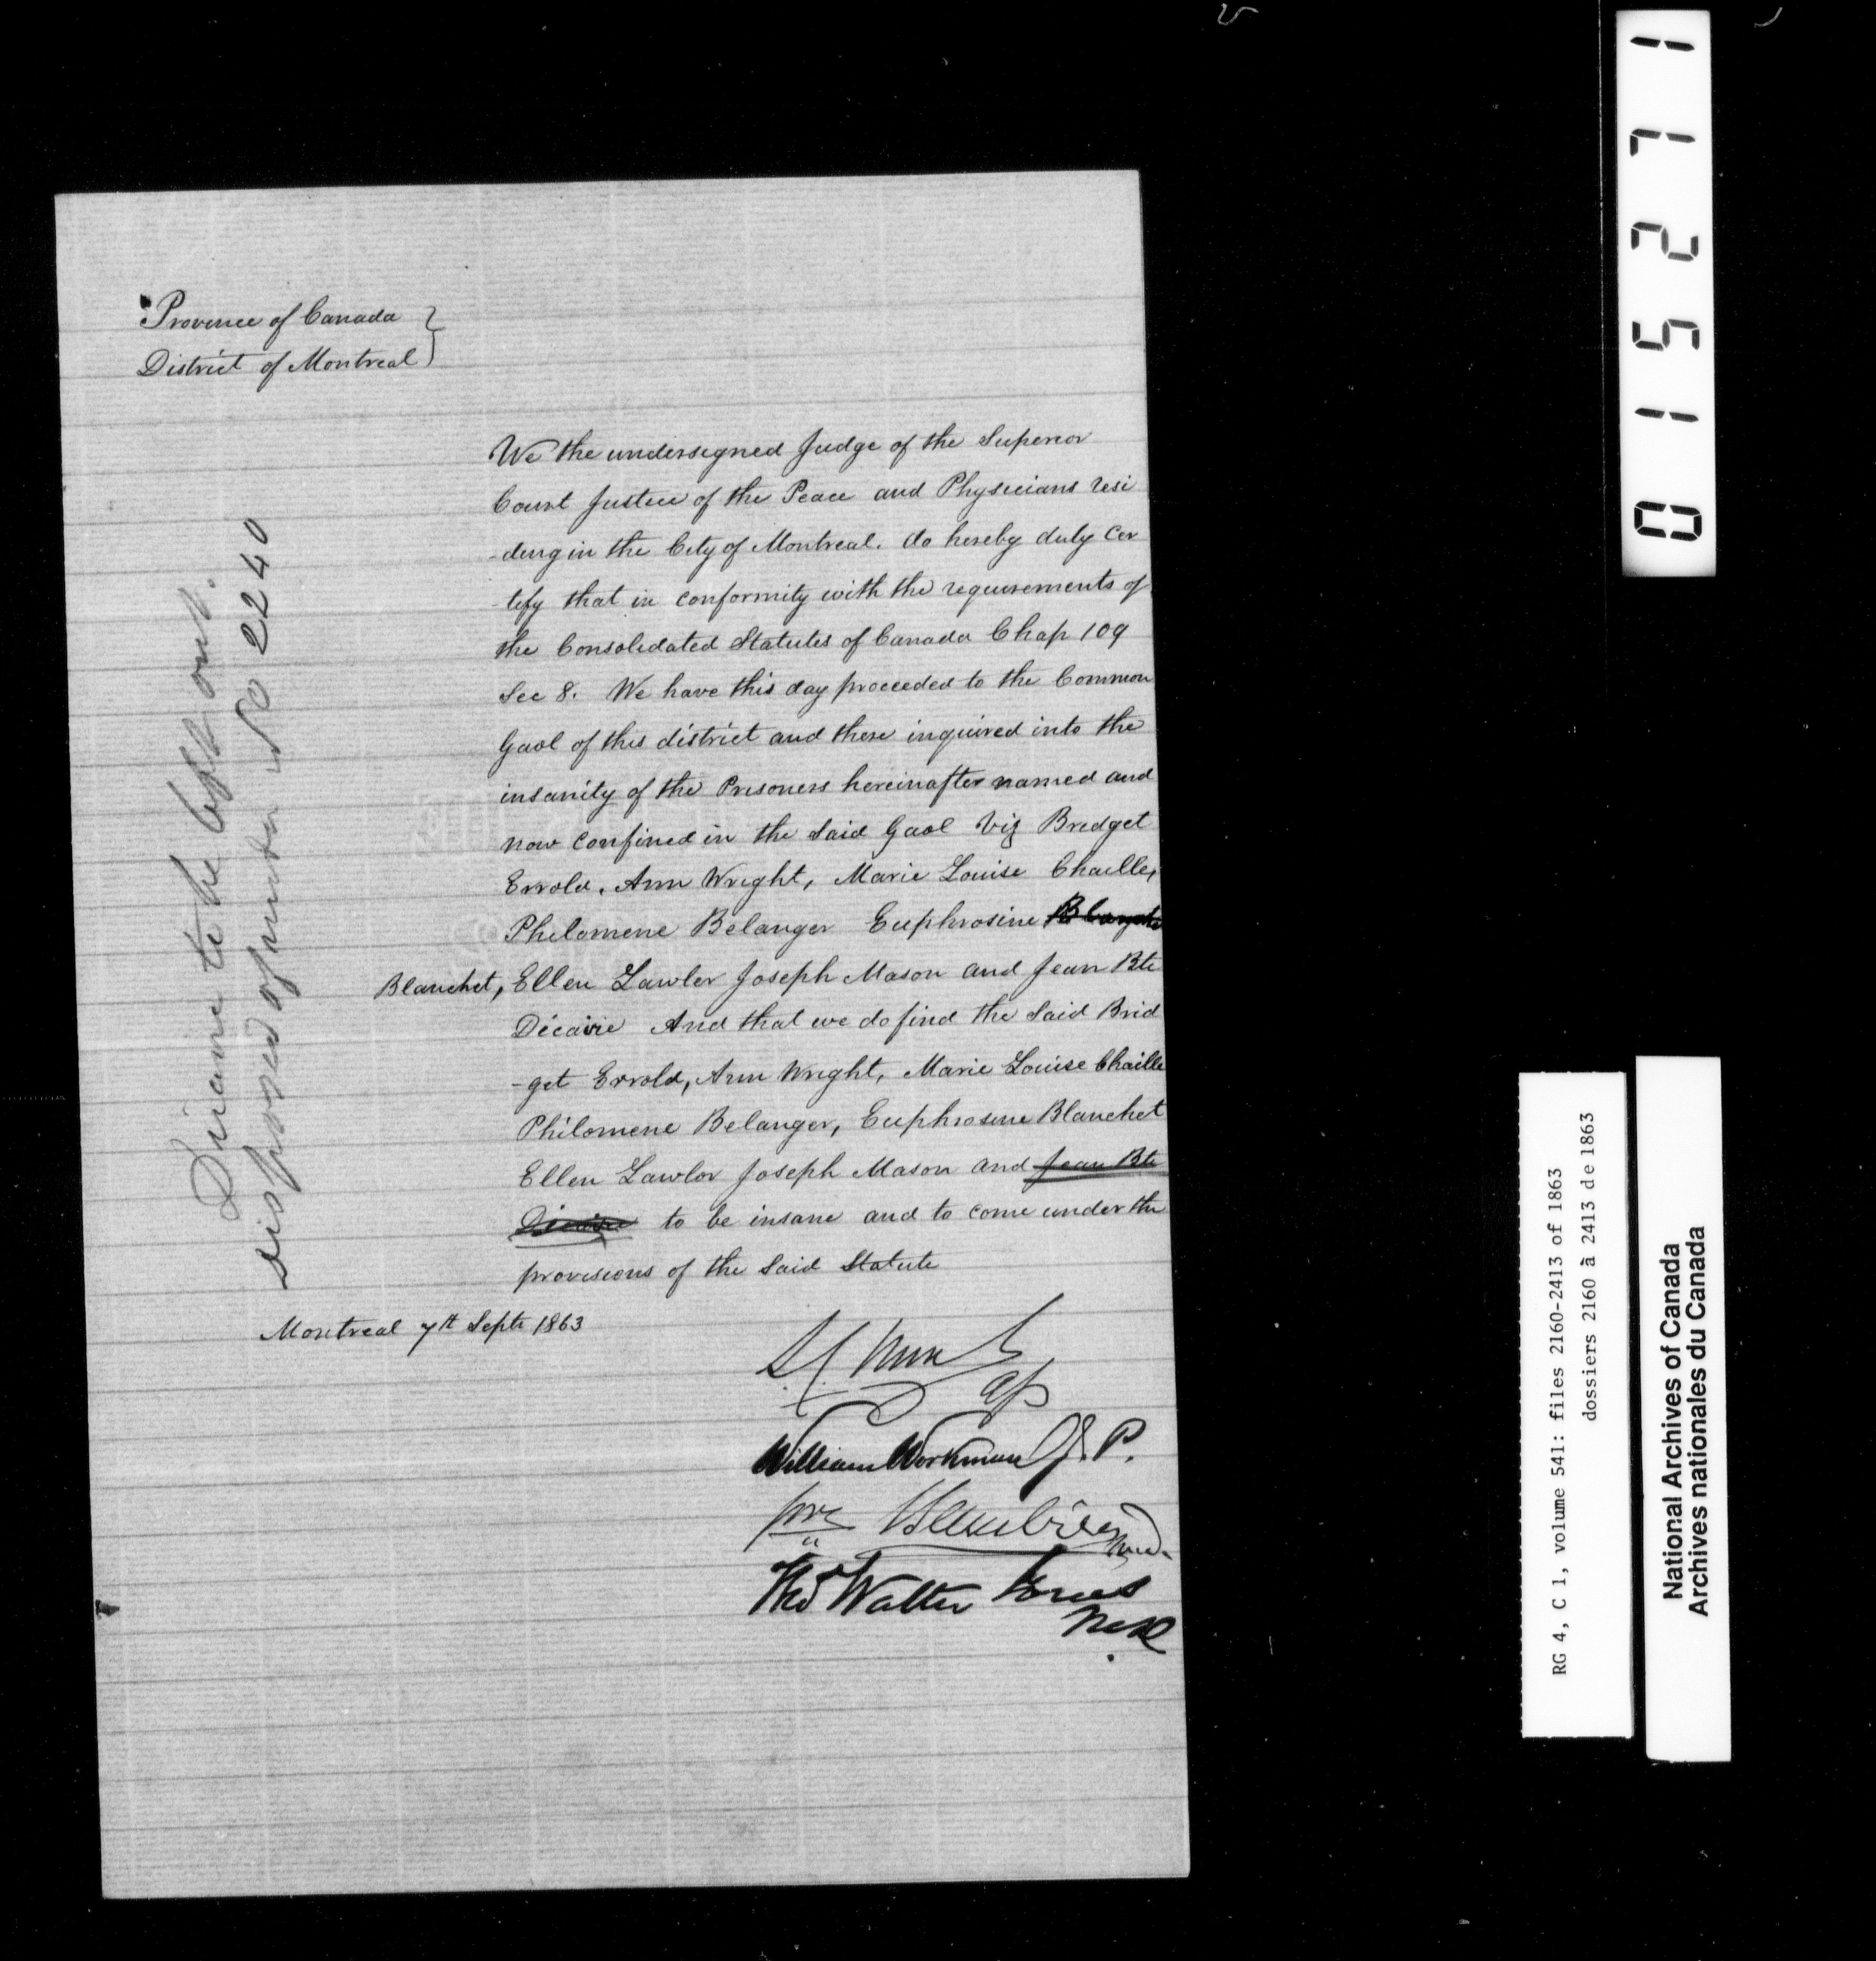 Province of Canada }
District of Montreal }
We the undersigned Judge of the Superior
Court Justice of the Peace and Physicians resi
-ding in the City of Montreal. do hereby duly cer
-tify that in conformity with the requirements of
the Consolidated Statutes of Canada Chap 109
Sec 8. We have this day proceeded to the Common
Gaol of this district and there inquired into the
insanity of the Prisoners hereinafter named and
now confined in the Said Gaol Viz Bredget
Errold, Ann Wright, Marie Louise Chaille,
Philomene Belanger Euphrosine
Blanchet, Ellen Lawler Joseph Mason and Jean Bte
Décairie And that we do find the Said Brid
-get Errold, Ann Wright, Marie Louise Chaille
Philomene Belanger, Euphrosine Blanchet
Ellen Lawlor Joseph Mason and Jean Bte
to be insane and to come under the
provisions of the Said Statute
Montreal 7th Septr 1863
William Workman J. P.
Walter Jones
to be
disposed of under No 2240
0 1 5 2 7 1
RG 4, C 1, volume 541: files 2160-2413 of 1863
dossiers 2160 à 2413 de 1863
National Archives of Canada
Archives nationales du Canada